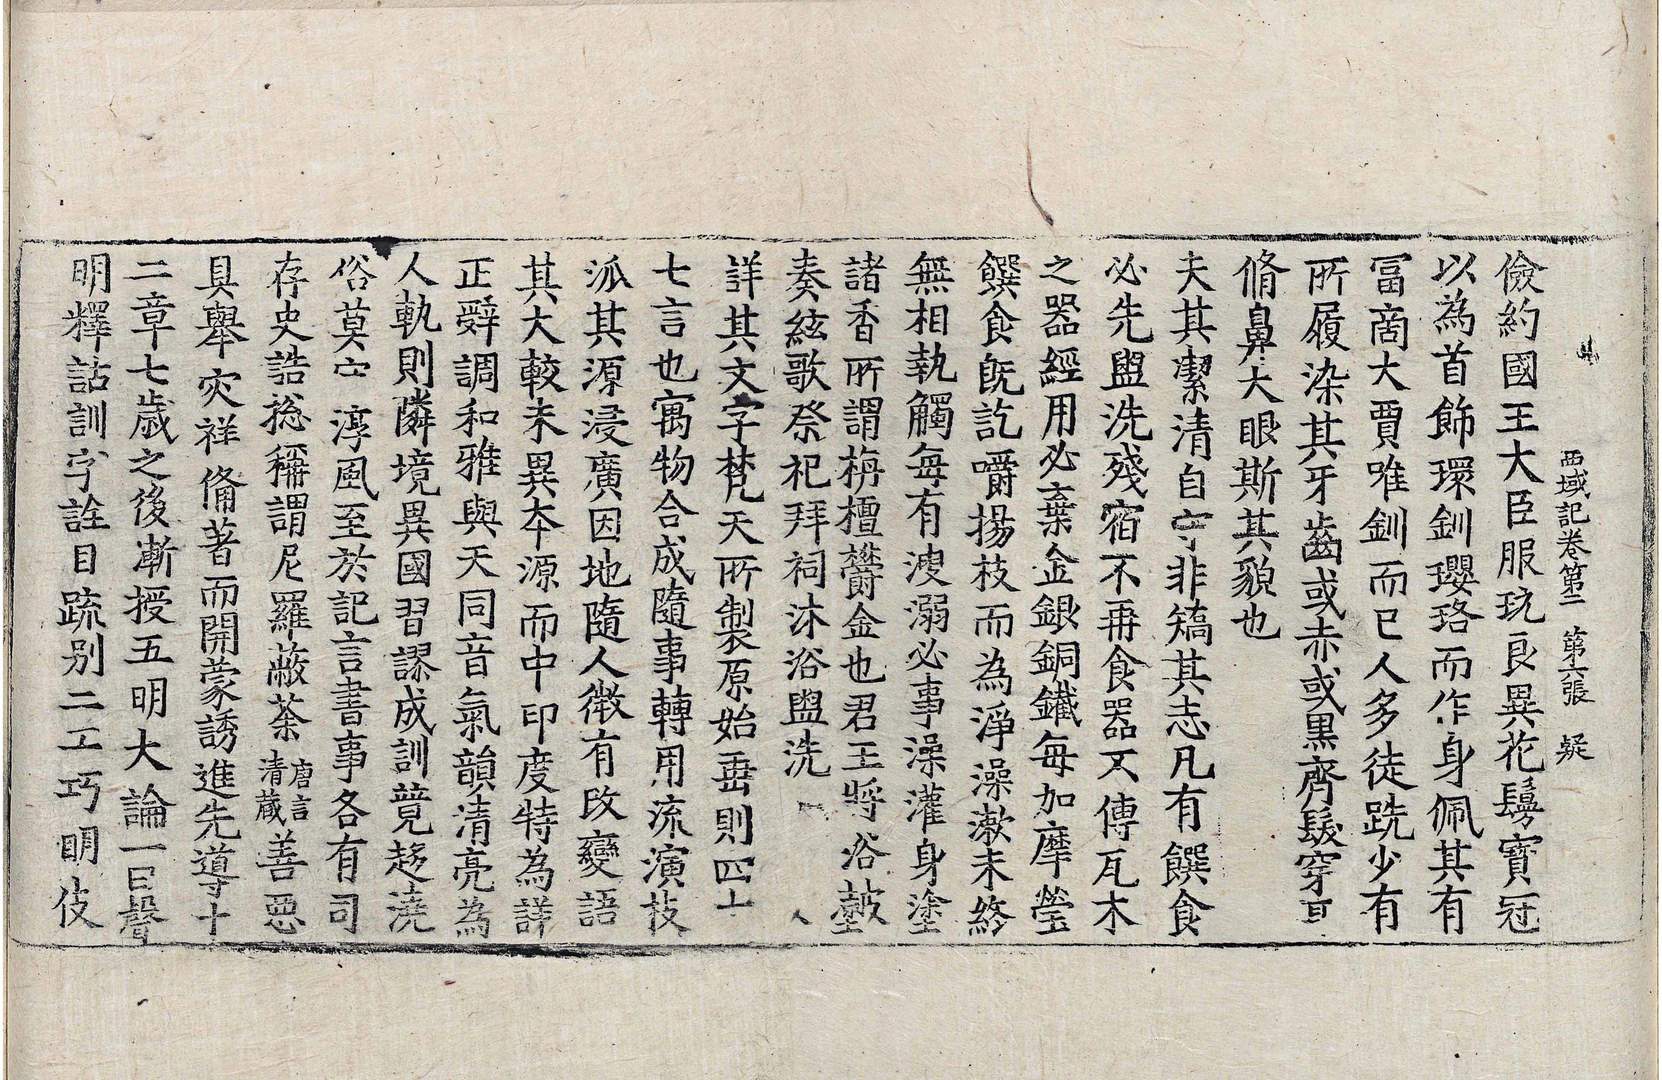 西域記卷第二 第六張 疑
儉約國王大臣服玩良異花鬘寶冠
以為首飾環釧瓔珞而作身佩其有
冨商大賈唯釧而已人多徒跣少有
所履染其牙齒或赤或黒齊髮穿耳
脩鼻大眼斯其貌也
夫其潔清自守非矯其志凡有饌食
必先盥洗殘宿不再食器不傳瓦木
之器經用必棄金銀銅鐵每加摩瑩
饌食旣訖嚼揚枝而為淨澡漱未終
無相執觸每有溲溺必事澡灌身塗
諸香所謂栴檀欝金也君王將浴鼓
奏絃歌祭祀拜祠沐浴盥洗
詳其文字梵天所製原始垂則四十
七言也寓物合成隨事轉用流演枝
泒其源浸廣因地隨人微有改變語
其大較未異夲源而中印度特為詳
正辭調和雅與天同音氣韻清亮為
人軌則隣境異國習謬成訓競趍澆
俗莫守淳風至於記言書事各有司
存史誥捴稱謂尼羅蔽荼唐言清蔵善惡
具舉灾祥俻著而開蒙誘進先導十
二章七歳之後漸授五明大論一曰聲
明釋詁訓字詮目䟽别二工巧明伎